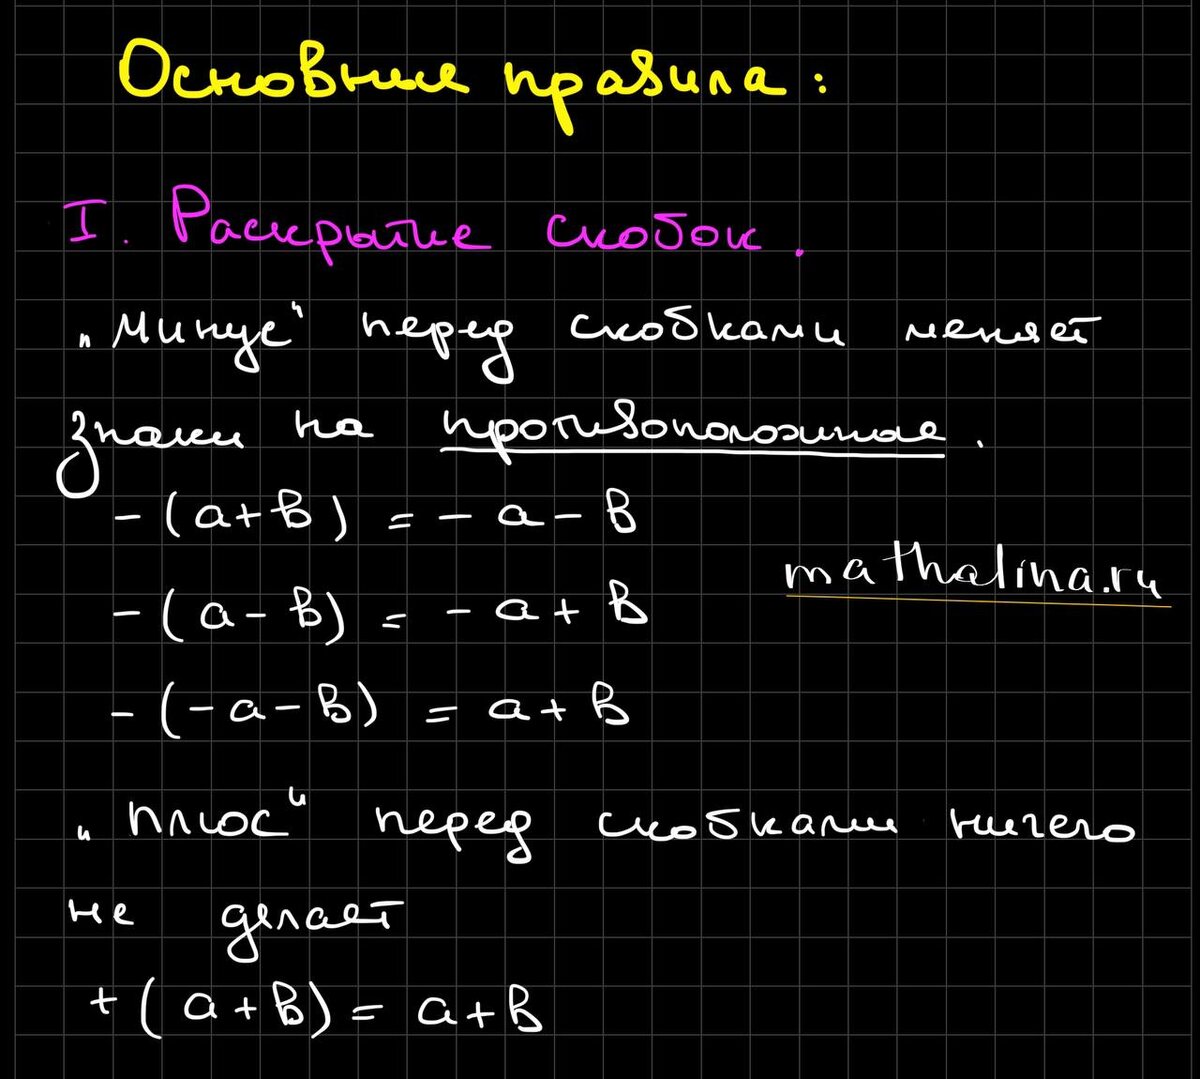 Основные правила:
I. Раскрытие скобок.
„Минус“ перед скобками меняет
знаки на противоположные.
-(a+b) = -a-b
mathalina.ru
-(a-b) = -a+b
-(-a-b) = a+b
„плюс“ перед скобками ничего
не делает
+(a+b) = a+b